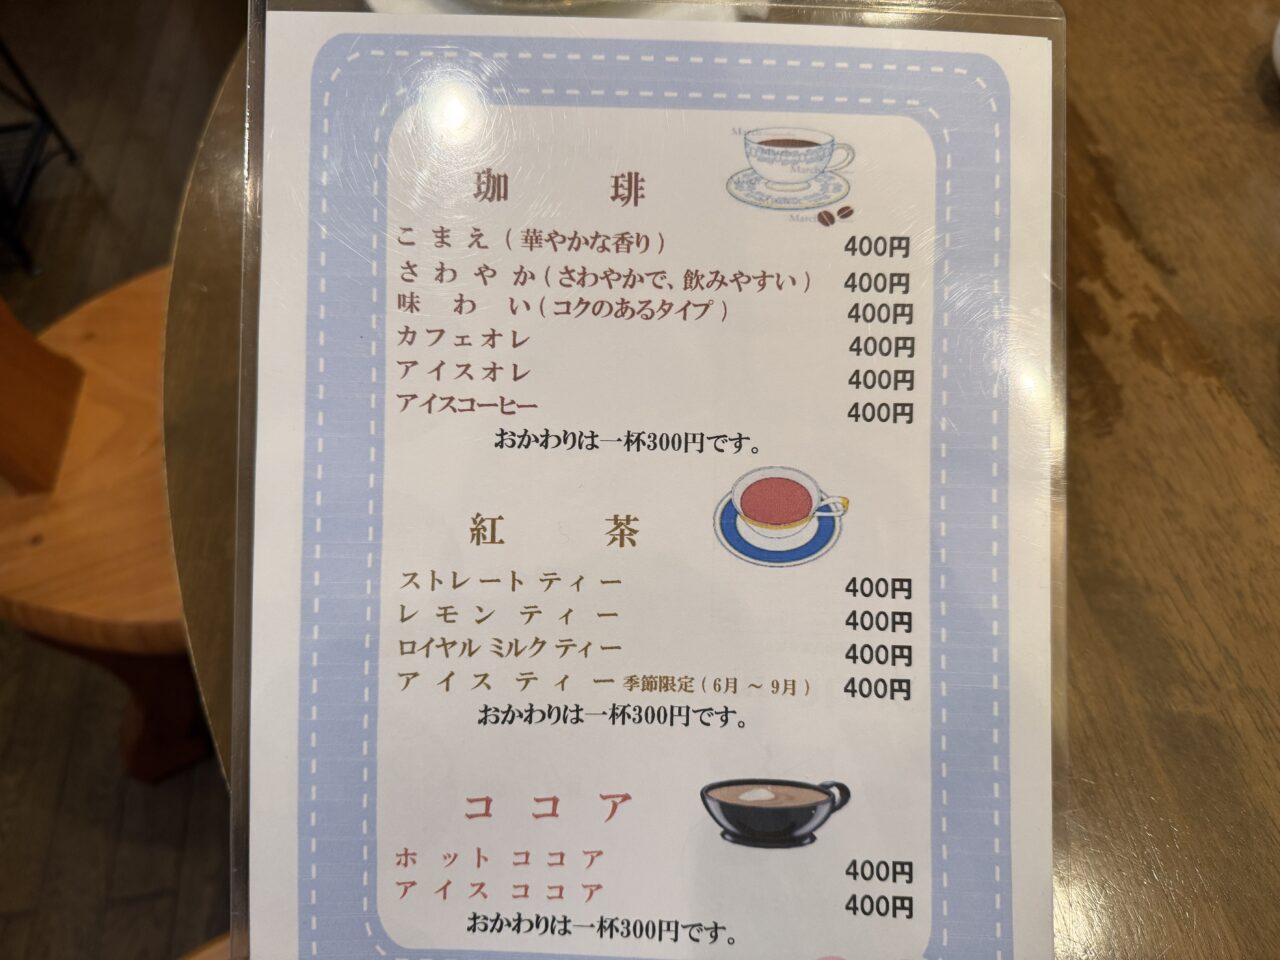 珈琲
こまえ(華やかな香り) 400円
さわやか(さわやかで、飲みやすい) 400円
味わい(コクのあるタイプ) 400円
カフェオレ 400円
アイスオレ 400円
アイスコーヒー 400円
おかわりは一杯300円です。
紅茶
ストレートティー 400円
レモンティー 400円
ロイヤルミルクティー 400円
アイスティー季節限定(6月～9月) 400円
おかわりは一杯300円です。
ココア
ホットココア 400円
アイスココア 400円
おかわりは一杯300円です。